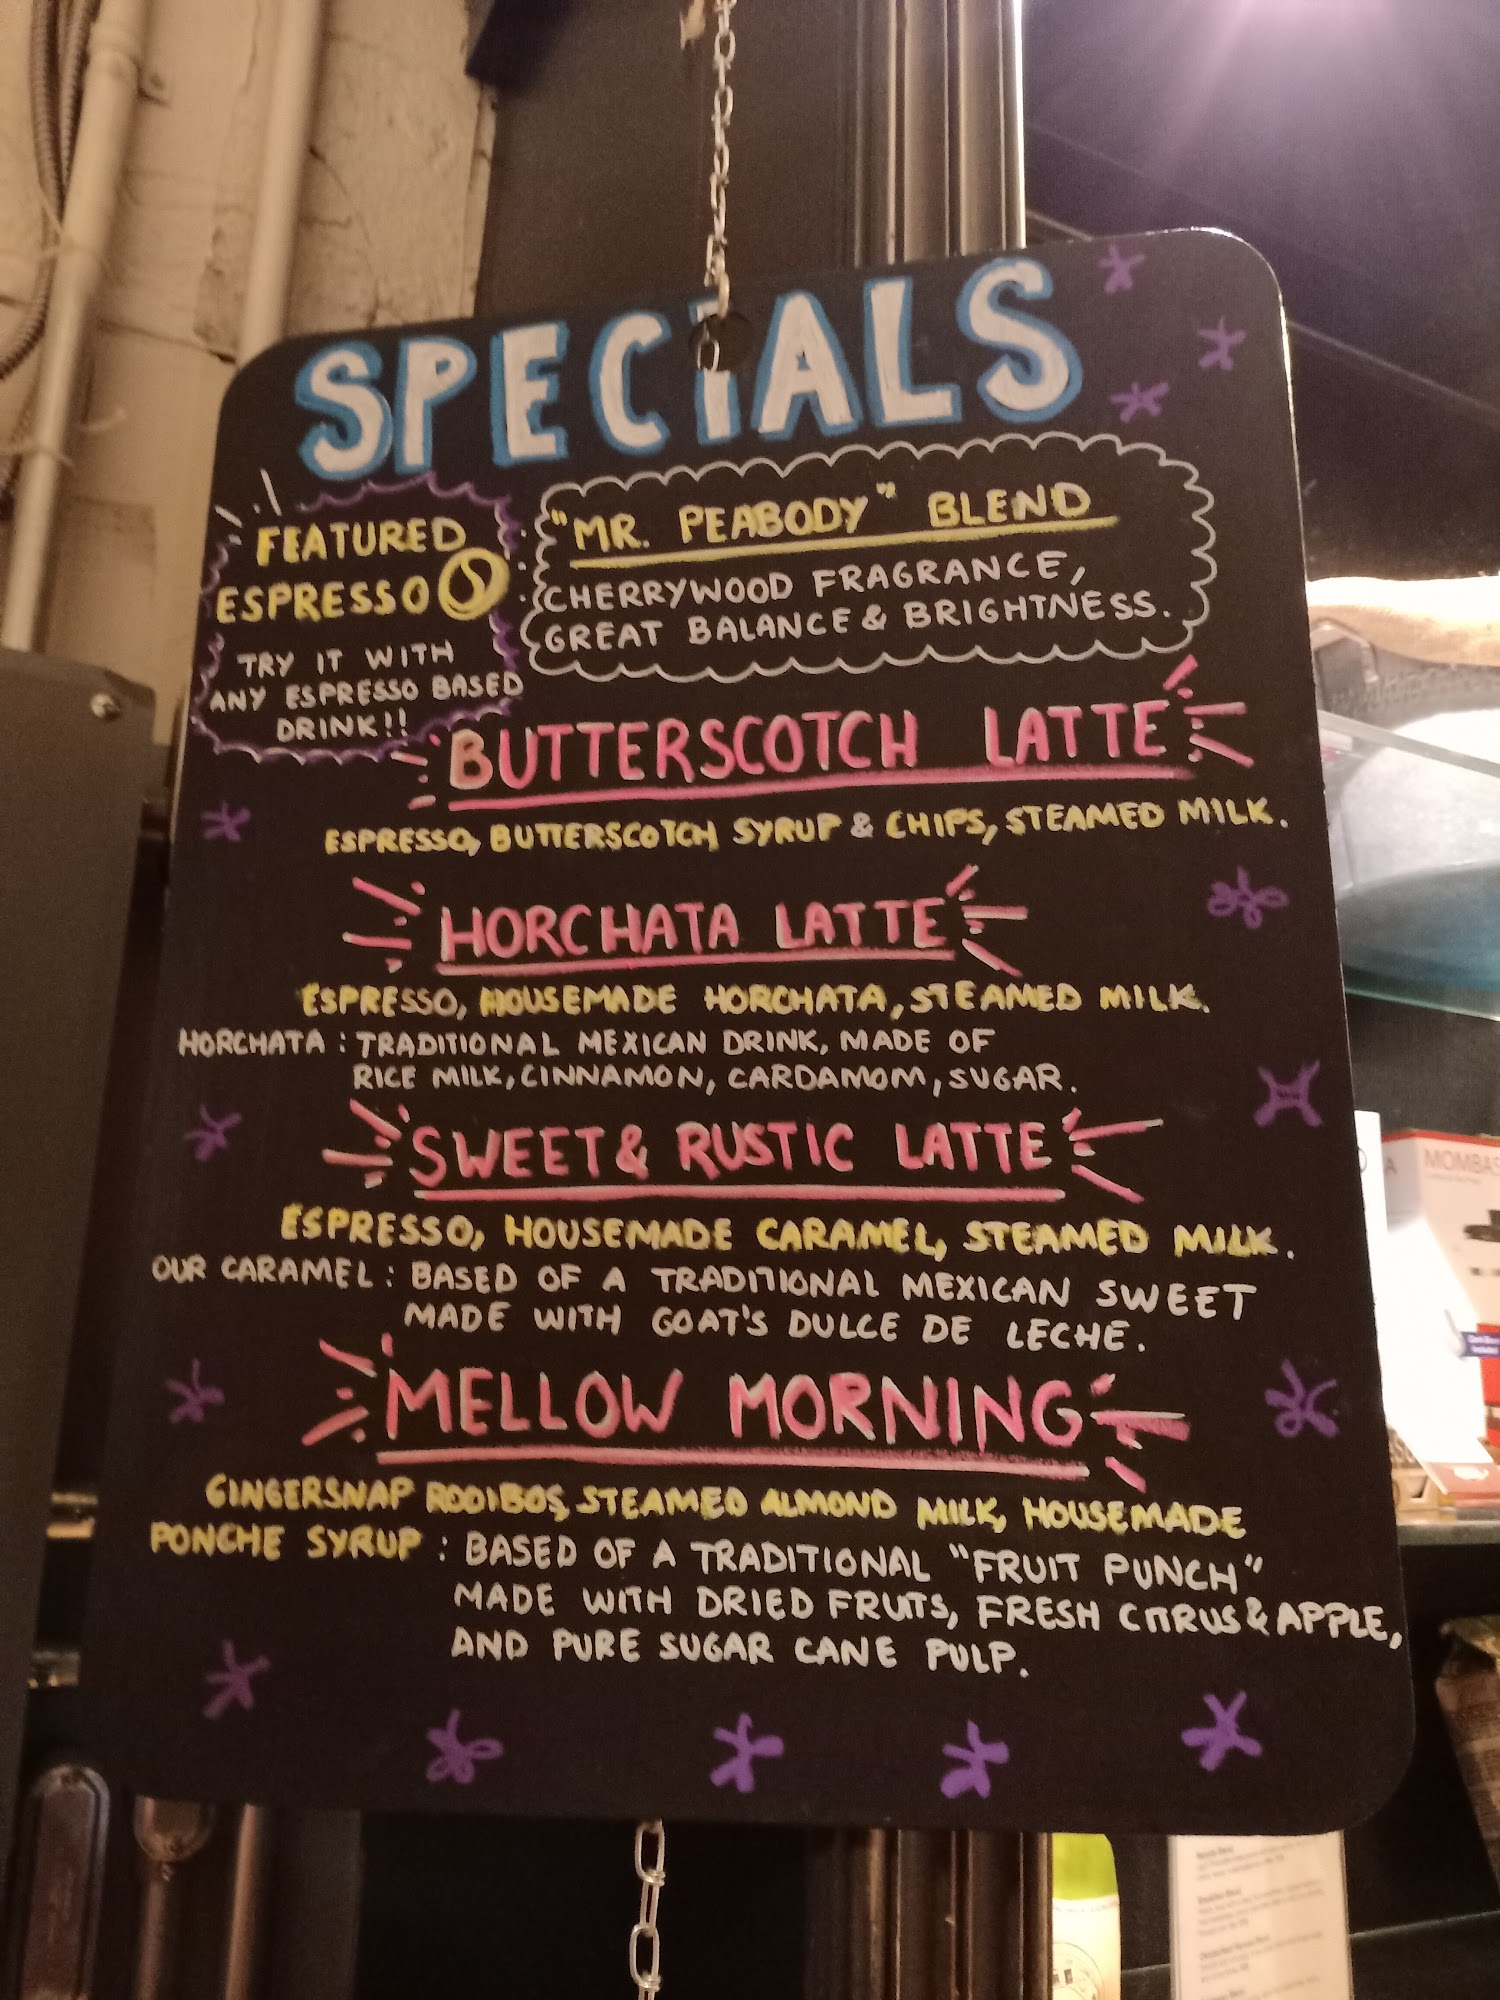 SPECIALS
FEATURED
ESPRESSO
TRY IT WITH
ANY ESPRESSO BASED
DRINK!!
"MR. PEABODY" BLEND
CHERRYWOOD FRAGRANCE,
GREAT BALANCE & BRIGHTNESS.
BUTTERSCOTCH LATTE
ESPRESSO, BUTTERSCOTCH SYRUP & CHIPS, STEAMED MILK.
HORCHATA LATTE
ESPRESSO, HOUSEMADE HORCHATA, STEAMED MILK.
HORCHATA: TRADITIONAL MEXICAN DRINK, MADE OF
RICE MILK, CINNAMON, CARDAMOM, SUGAR.
SWEET & RUSTIC LATTE
ESPRESSO, HOUSEMADE CARAMEL, STEAMED MILK.
OUR CARAMEL: BASED OF A TRADITIONAL MEXICAN SWEET
MADE WITH GOAT'S DULCE DE LECHE.
MELLOW MORNING
GINGERSNAP ROOIBOS, STEAMED ALMOND MILK, HOUSEMADE
PONCHE SYRUP: BASED OF A TRADITIONAL "FRUIT PUNCH"
MADE WITH DRIED FRUITS, FRESH CITRUS & APPLE,
AND PURE SUGAR CANE PULP.